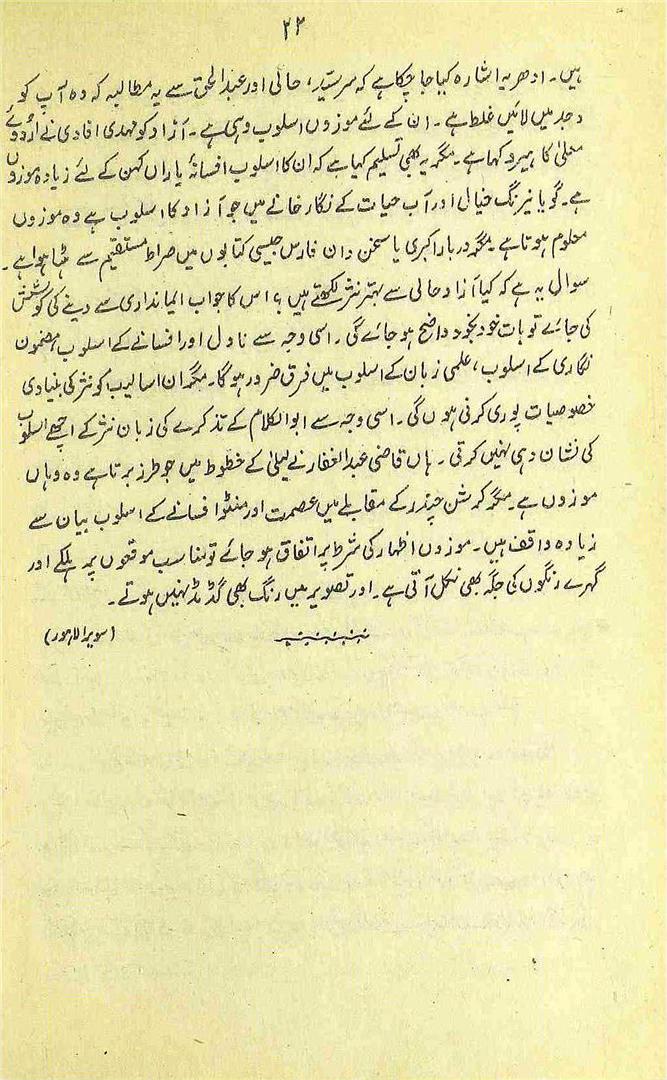 ۲۳
ہیں۔ ادھر یہ اشارہ کیا جا چکا ہے کہ سرسید، حالی اور عبدالحق سے یہ مطالبہ کہ وہ آپ کو
وجد میں لائیں غلط ہے۔ ان کے لئے موزوں اسلوب وہی ہے۔ آزاد کو مہدی افادی نے اردوئے
معلیٰ کا ہیرو کہا ہے۔ مگر یہ بھی تسلیم کیا ہے کہ ان کا اسلوب افسانۂ یاران کہن کے لئے زیادہ موزوں
ہے۔ گویا نیرنگ خیال اور آب حیات کے نگار خانے میں جو آزاد کا اسلوب ہے وہ موزوں
معلوم ہوتا ہے۔ مگر دربار اکبری یا سخن دان فارس جیسی کتابوں میں صراط مستقیم سے ہٹا ہوا ہے۔
سوال یہ ہے کہ کیا آزاد حالی سے بہتر نثر لکھتے ہیں؟ اس کا جواب ایمانداری سے دینے کی کوشش
کی جائے تو بات خود بخود واضح ہو جائے گی۔ اسی وجہ سے ناول اور افسانے کے اسلوب، مضمون
نگاری کے اسلوب، علمی زبان کے اسلوب میں فرق ضرور ہوگا۔ مگر ان اسالیب کو نثر کی بنیادی
خصوصیات پوری کرنی ہوں گی۔ اسی وجہ سے ابوالکلام کے تذکرے کی زبان نثر کے اچھے اسلوب
کی نشان دہی نہیں کرتی۔ ہاں قاضی عبدالغفار نے لیلیٰ کے خطوط میں جو طرز برتا ہے وہ وہاں
موزوں ہے۔ مگر کرشن چندر کے مقابلے میں عصمت اور منٹو افسانے کے اسلوب بیان سے
زیادہ واقف ہیں۔ موزوں اظہار کی شرط پر اتفاق ہو جائے تو مناسب موقعوں پر ہلکے اور
گہرے رنگوں کی جگہ بھی نکل آتی ہے۔ اور تصویر میں رنگ بھی گڈمڈ نہیں ہوتے۔
(سویرا لاہور)